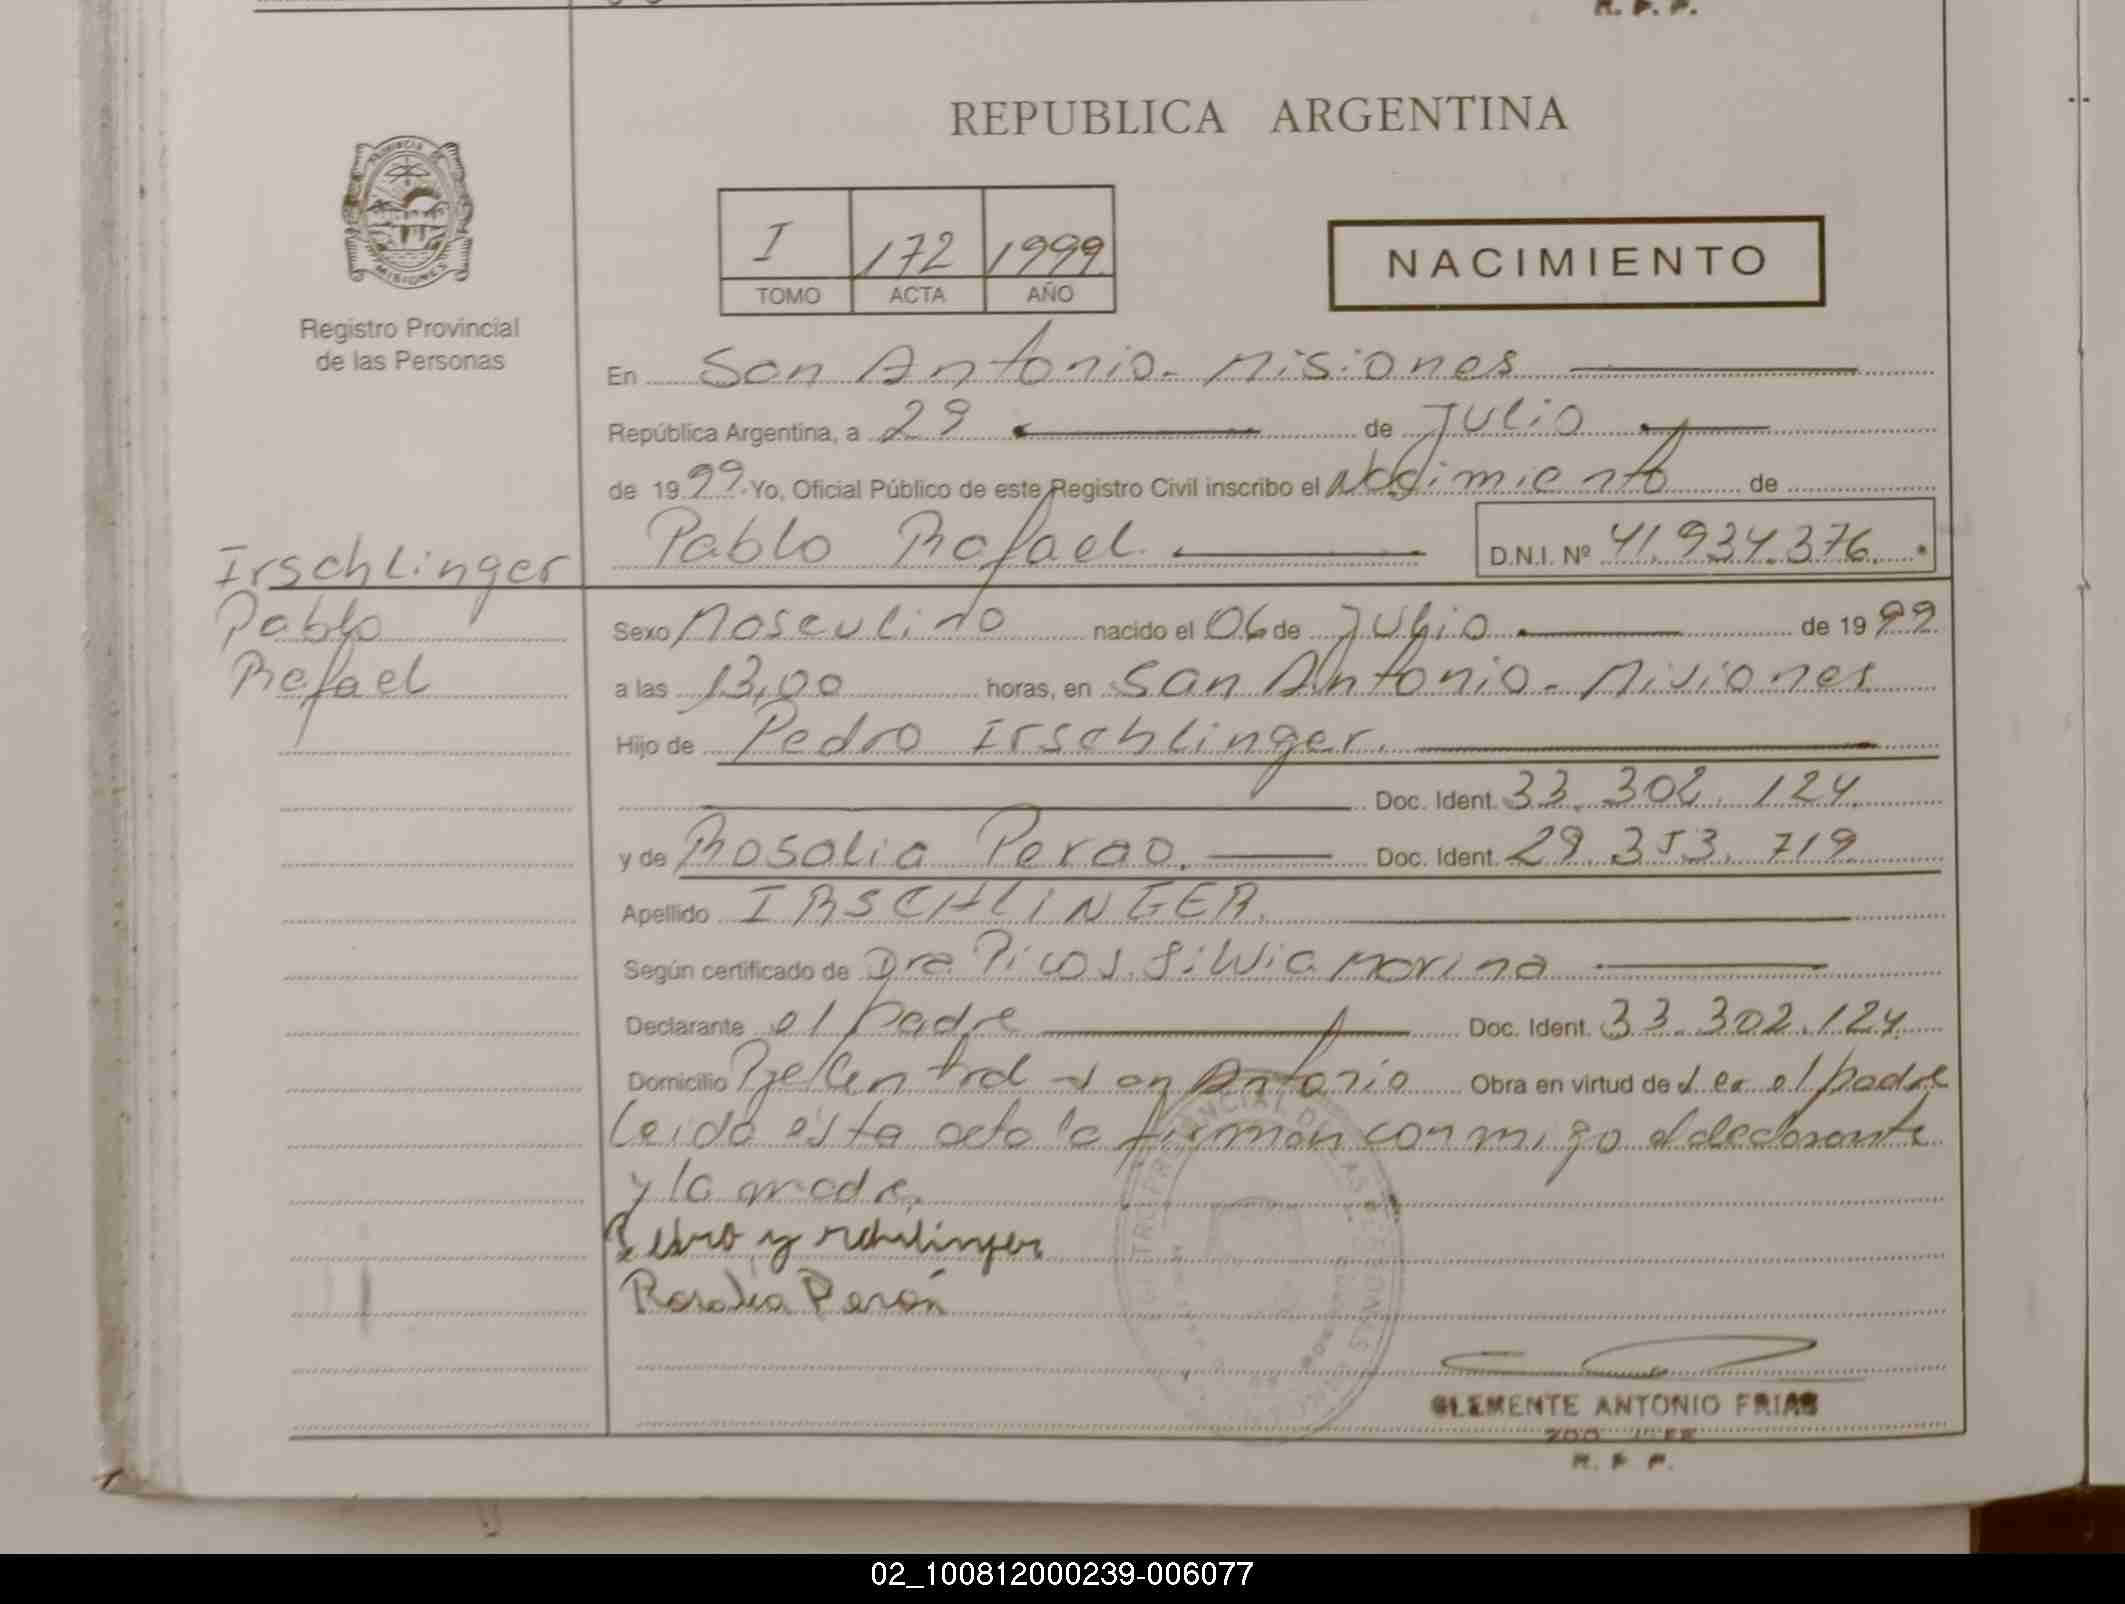 R. P. P.
REPUBLICA ARGENTINA
PROVINCIA DE
MISIONES
Registro Provincial
de las Personas
I 172 1999
TOMO ACTA AÑO
NACIMIENTO
En San Antonio - Misiones
República Argentina, a 29 de Julio
de 1999. Yo, Oficial Público de este Registro Civil inscribo el Nacimiento de
Pablo Rafael. D.N.I. Nº 41.934.376.
Irschlinger
Pablo
Rafael
Sexo Masculino nacido el 06 de Julio de 1999
a las 13,00 horas, en San Antonio - Misiones
Hijo de Pedro Irschlinger.
Doc. Ident. 33.302.124.
y de Rosalia Perao. Doc. Ident. 29.353.719
Apellido IRSCHLINGER.
Según certificado de Dra Picos Silvia Marina
Declarante el padre Doc. Ident. 33.302.124.
Domicilio Pje Central San Antonio Obra en virtud de ser el padre
leida esta acta la firman conmigo el declarante
y la madre.
Rosalia Perón
CLEMENTE ANTONIO FRIAS
R. P. P.
02_100812000239-006077